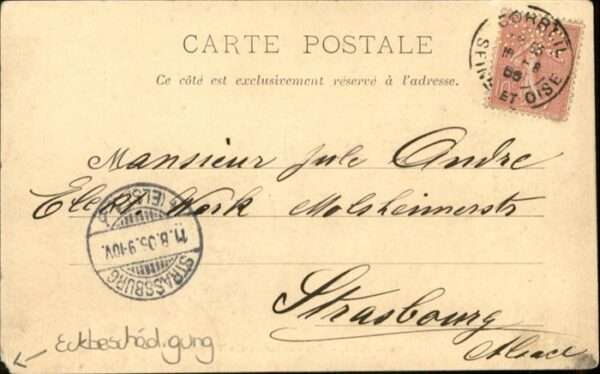 CARTE POSTALE
Ce côté est exclusivement réservé à l'adresse.
CORBEIL
SEINE ET OISE
Mansieur Jule Andre
Elekt Work Molsheimerstr
Strasbourg
Alsace
STRASSBURG (ELS.)
11.8.05.9-10V.
Eckbeschädigung